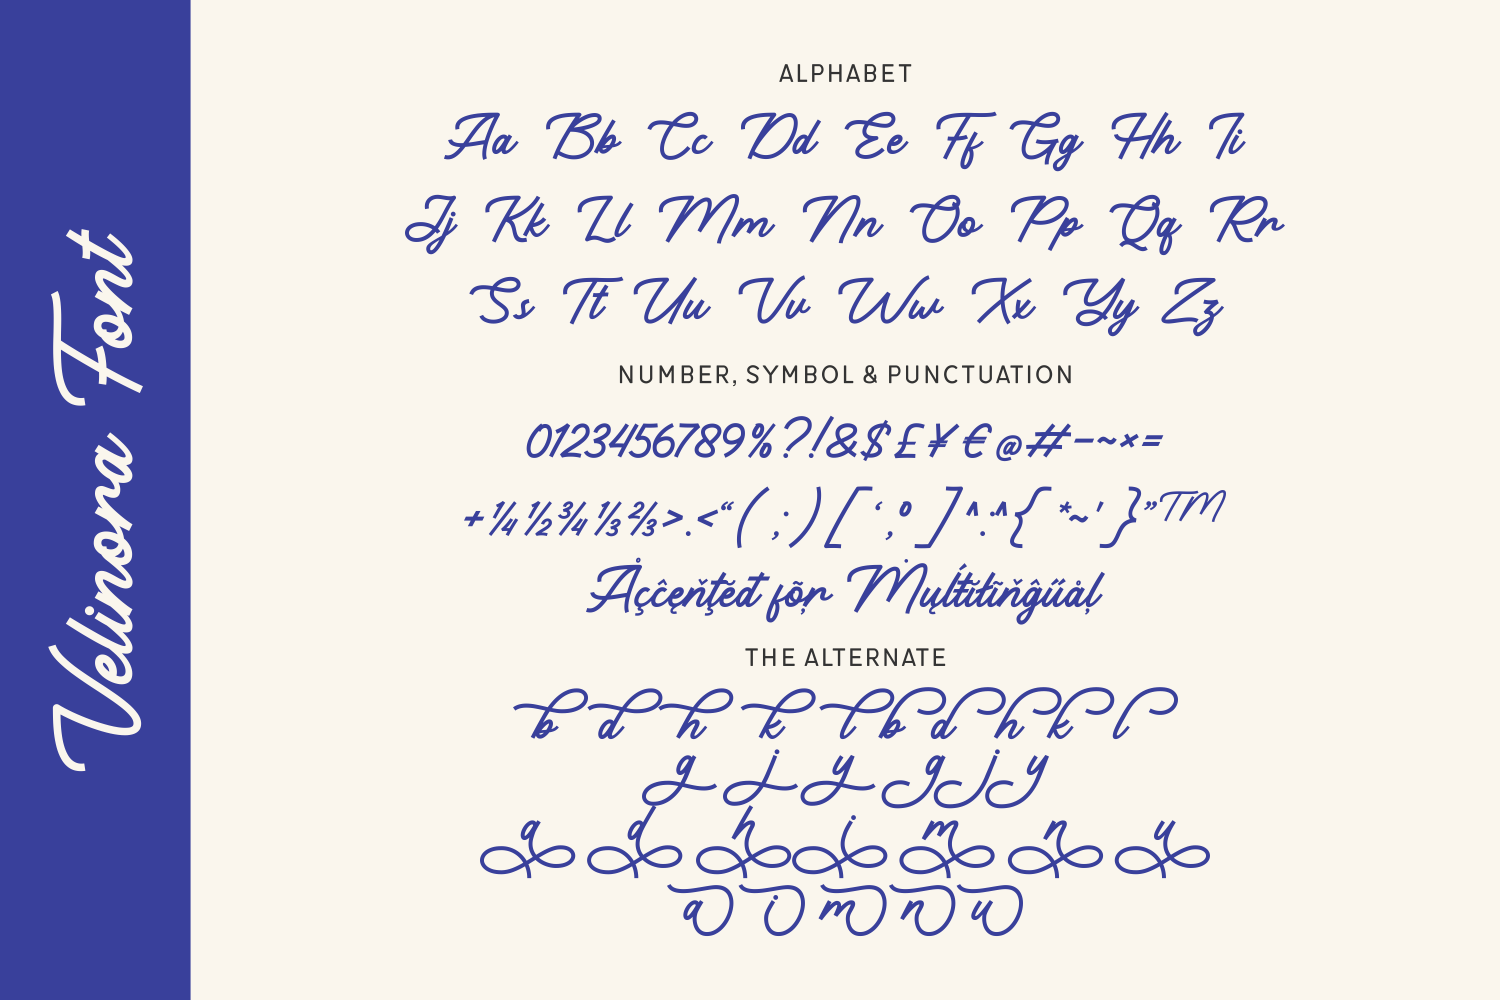 Velinora Font
ALPHABET
Aa Bb Cc Dd Ee Ff Gg Hh Ii
Jj Kk Ll Mm Nn Oo Pp Qq Rr
Ss Tt Uu Vv Ww Xx Yy Zz
NUMBER, SYMBOL & PUNCTUATION
0123456789%?!&$£¥€@#-~×=
+¼½¾⅓⅔>.<“(;)[‘,º]^.·^{*~'}”™
THE ALTERNATE
b d h k l b d h k l
g j y g j y
a d h i m n u
a i m n u